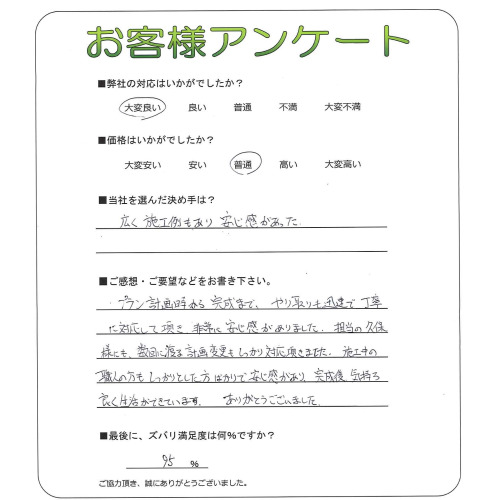 お客様アンケート
■弊社の対応はいかがでしたか？
大変良い 良い 普通 不満 大変不満
■価格はいかがでしたか？
大変安い 安い 普通 高い 大変高い
■当社を選んだ決め手は？
広く施工例もあり安心感があった
■ご感想・ご要望などをお書き下さい。
プラン計画時から完成まで、やり取りも迅速で丁寧
に対応して頂き非常に安心感がありました。担当の久保
様にも、数回に渡る計画変更もしっかり対応頂きました。施工中の
職人の方もしっかりとした方ばかりで安心感があり完成後気持ち
良く生活ができています。ありがとうございました。
■最後に、ズバリ満足度は何％ですか？
95 %
ご協力頂き、誠にありがとうございました。